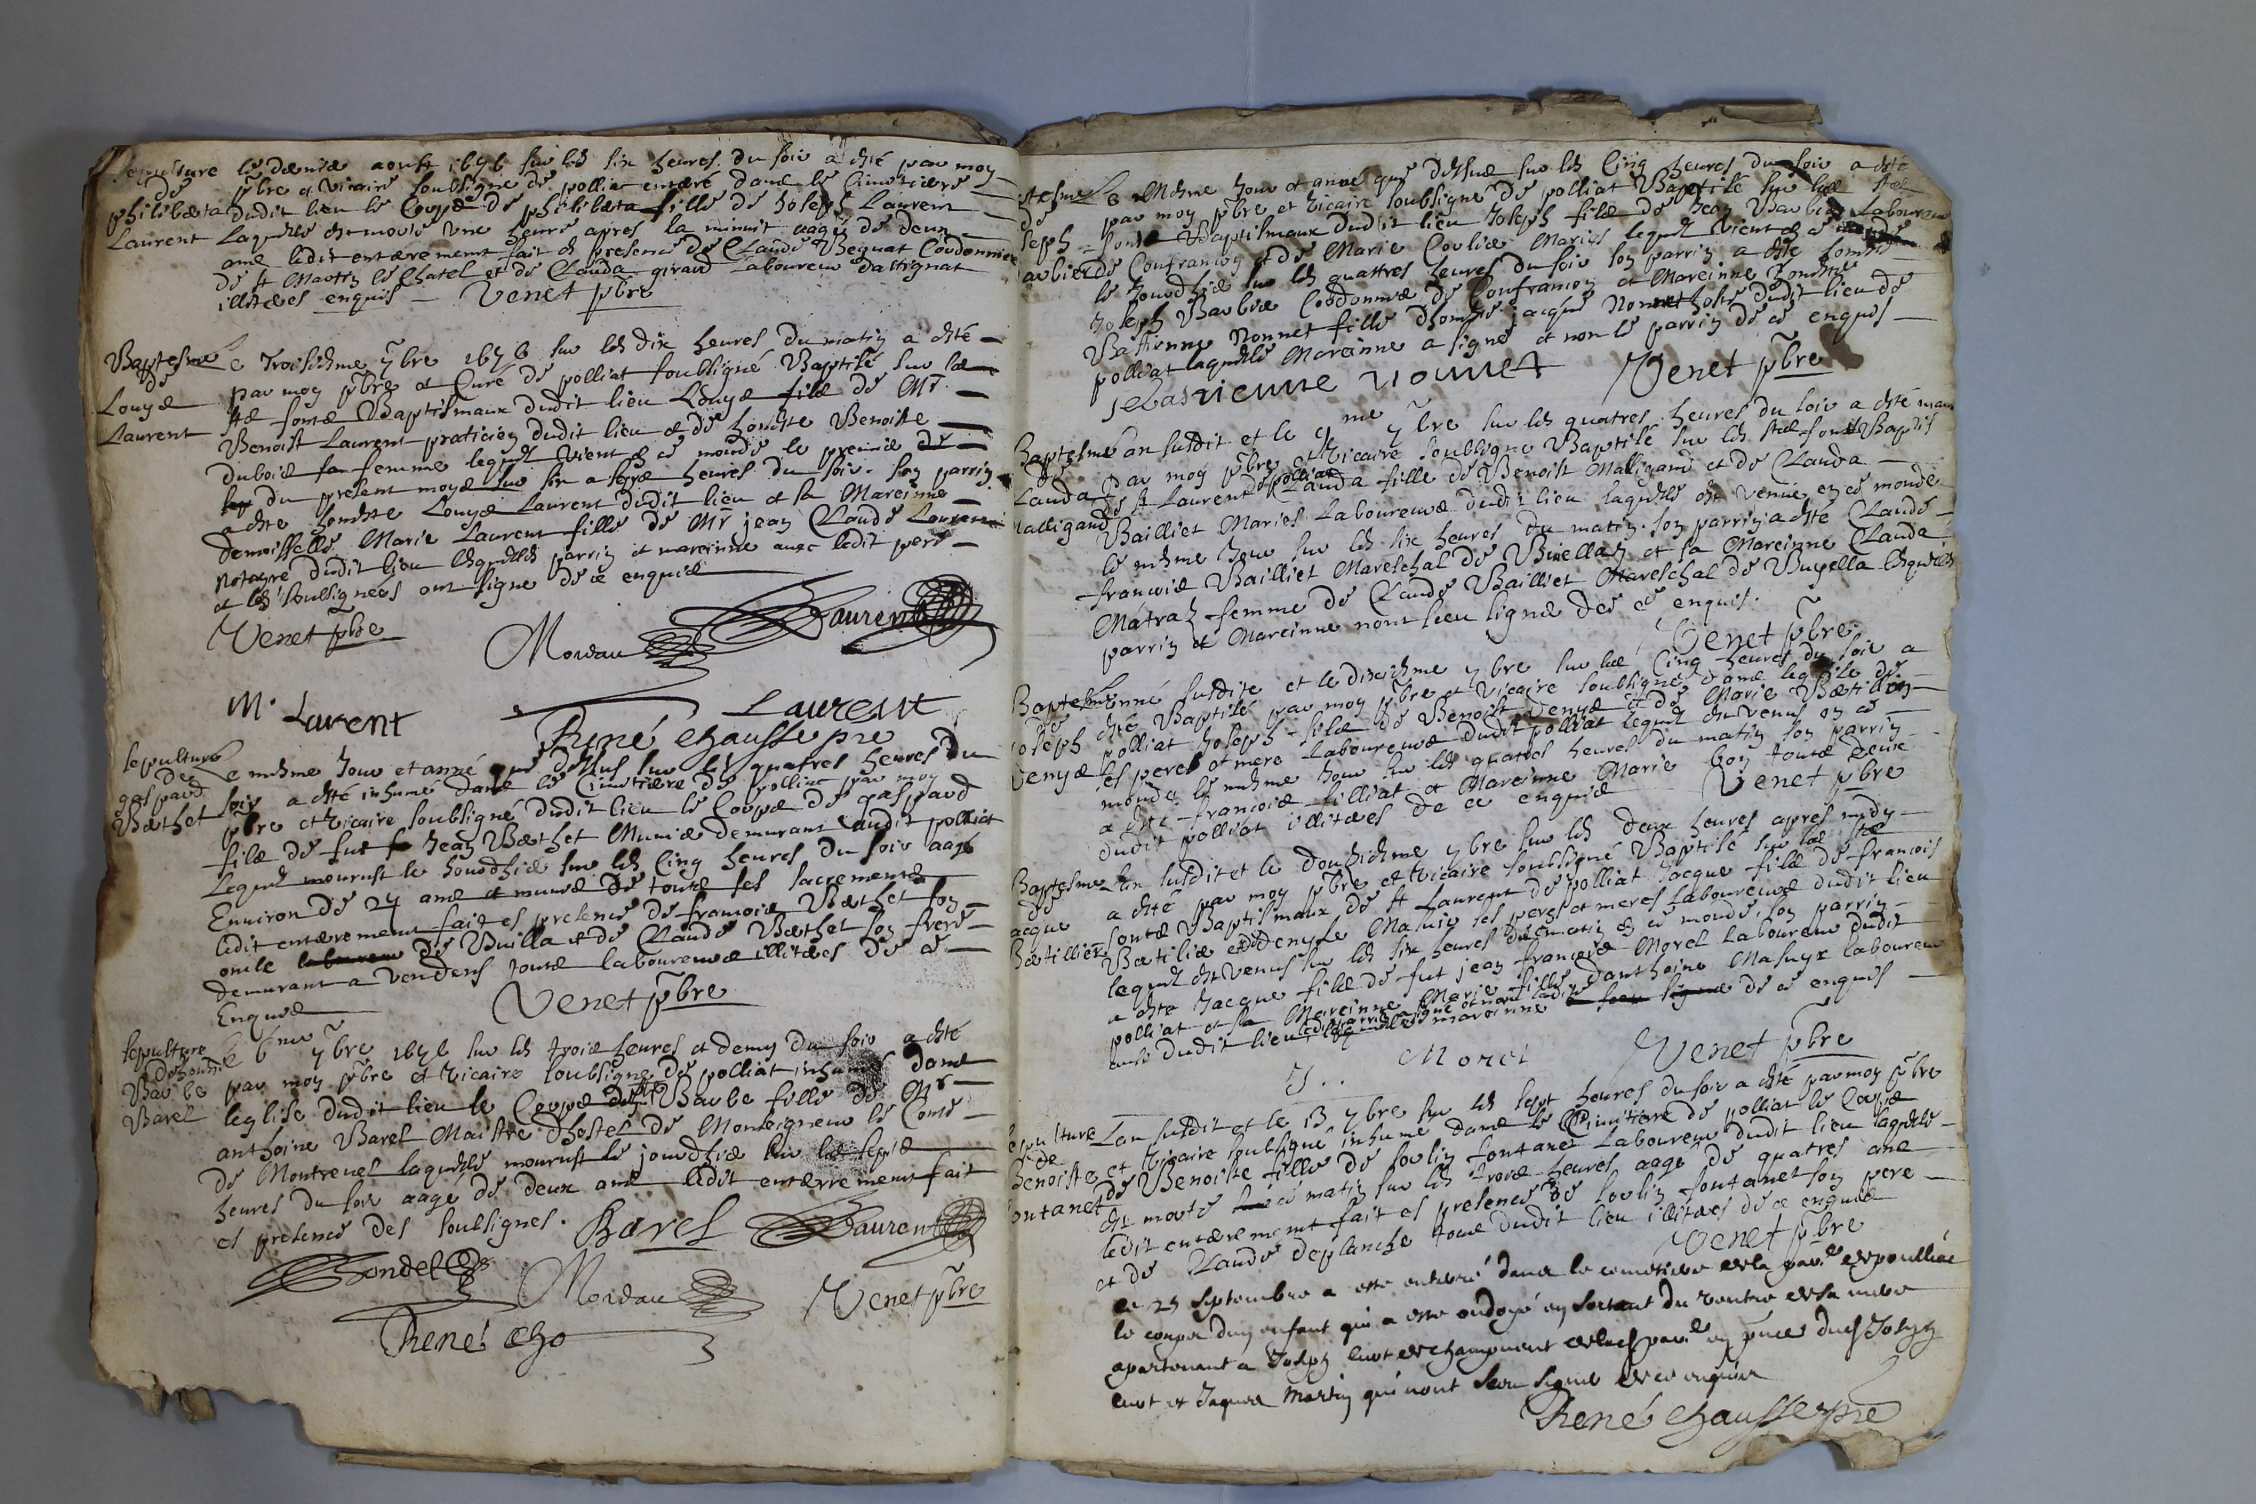 sepulture le dernier aoust 1676 sur les six heures du soir a esté par moy
de pbre et vicaire soubsigné de polliat enterré dans le cimetiere
philiberta dudit lieu le corps de philiberta fille de Joseph Laurent
Laurent laquelle est morte une heure apres la minuit aagée de deux
ans ledit enterrement fait es presence de Claude Bequat Cordonnier
de st Martin le Chatel et de Clauda giraud laboureur dattignat
illiteres enquis Venet pbre
Baptesme Le troisiesme 7bre 1676 sur les dix heures du matin a esté
de par moy pbre et Curé de polliat soubsigné Baptisé sur les
Louys sts fonts Baptismaux dudit lieu Louys fils de Mr
Laurent Benoist Laurent praticien dudit lieu et de honeste Benoiste
dubois sa femme lequel vient en ce monde le premier
du present moys sur six a sept heures du soir. son parrin
a esté honeste Louys Laurent dudit lieu et sa Mareinne
demoiselle Marie Laurent fille de Mr jean Claude Laurent
notayre dudit lieu lesquels parrin et mareinne avec ledit pere
et les soubsignés ont signé de ce enquis
Venet pbre Moreau Laurent
M. Laurent Laurent
René chaussepre
sepulture Le mesme Jour et anné que dessus sur les quatres heures du
de soir a esté inhumé dans le Cimetiere de polliat par moy
gaspard pbre et vicaire soubsigné dudit lieu le Corps de gaspard
Bethet fils de fut Jean Bethet Munier demurant audit polliat
lequel mourust le jourdhier sur les Cinq heures du soir aagé
Environ de 24 ans et munis de touts ses sacrements
ledit enterrement fait es presence de francois Bethet son
oncle de Buella et de Claude Bethet son frere
demurant a vendens touts laboureurs illiteres de ce
Enquis Venet pbre
sepulture Le 6me 7bre 1676 sur les trois heures et demy du soir a esté
par moy pbre et vicaire soubsigné de polliat inhumé dans
Barbe leglise dudit lieu le Corps de Barbe fille de Mr
Barel anthoine Barel Maistre dhostel de Monseigneur le Comte
de Montrevel laquelle mourust le jourdhier sur les sept
heures du soir aagé de deux ans ledit enterrement fait
es presence des soubsignes. Barel Laurent
Moreau Venet pbre
René cho
Le Mesme Jour et anné que dessus sur les Cinq heures du soir a esté
de par moy pbre et vicaire soubsigné de polliat Baptisé sur les sts
fonts Baptismaux dudit lieu Joseph fils de Jean Barbier Laboureur
de Confrancon et de Marie Maries lequel vient en ce
le Jourdhier sur les quattres heures du soir son parrin a esté
Joseph Barbier Cordonnier de Confrancon et Mareinne honeste
Bastienne Nonnet fille dhoneste jacques Nonnet hoste dudit lieu de
polliat laquelle Mareinne a signé et non le parrin de ce enquis
sebastienne nonnet Venet pbre
Baptesme Lan susdit et le 9me 7bre sur les quatres heures du soir a esté
de par moy pbre et vicaire soubsigné Baptisé sur les sts fonts Baptis
Clauda de st Laurent de polliat Clauda fille de Benoist Malligand et de Clauda
Malligand Bailliet Maries Laboureurs dudit lieu laquelle est venue en ce monde
le mesme Jour sur les six heures du matin. son parrin a esté Claude
francois Bailliet Mareschal de Buellas et sa Mareinne Clauda
Matraz femme de Claude Bailliet Mareschal de Buyella lesquels
parrin et Mareinne nont sceu signer de ce enquis.
Venet pbre
Baptesme Lanné susdite et le dixiesme 7bre sur les Cinq heures du soir a
de esté Baptisé par moy pbre et vicaire soubsigné dans leglise de
Joseph polliat Joseph fils de Benoist Venys et de Marie Betillion
Venys ses peres et mere Laboureurs dudit polliat lequel est venus en ce
monde le mesme Jour sur les quattres heures du matin son parrin
a esté francois filliat et Mareinne Marie touts deux
dudit polliat illiteres de ce enquis Venet pbre
Baptesme Lan susdit et le douziesme 7bre sur les deux heures apres midy
de a esté par moy pbre et vicaire soubsigné Baptisé sur les sts
Jacque fonts Baptismaux de st Laurent de polliat Jacque fils de francois
Betillier et de denyse Masuir ses peres et meres Laboureurs dudit lieu
lequel est venus sur les six heures du matin en ce monde, son parrin
a esté Jacque fils de fut jean francois Morel Laboureur dudit
polliat et sa Mareinne Marie fille danthoine Masuyr laboureur
dudit lieu de ce enquis
Morel Venet pbre
sepulture Lan susdit et le 13 7bre sur les sept heures du soir a esté par moy pbre
de et vicaire soubsigné inhumé dans le Cimetiere de polliat le Corps
Benoiste de Benoiste fille de fontanet Laboureur dudit lieu laquelle
fontanet est morte ce matin sur les trois heures aagé de quatres ans
ledit enterrement fait es presence de fontanet son pere
et de Claude deplanche touts dudit lieu illiteres de ce enquis
Venet pbre
Le 25 septembre a esté enterré dans le cimetiere de la parse de poulliac
le corps dun enfant qui a esté ondoyé en sortant du ventre de sa mere
apartenant a Joseph de champmort de lad parse en pnce dud Joseph
et Jaques Martin qui nont sceu signer de ce enquis
René chaussepre